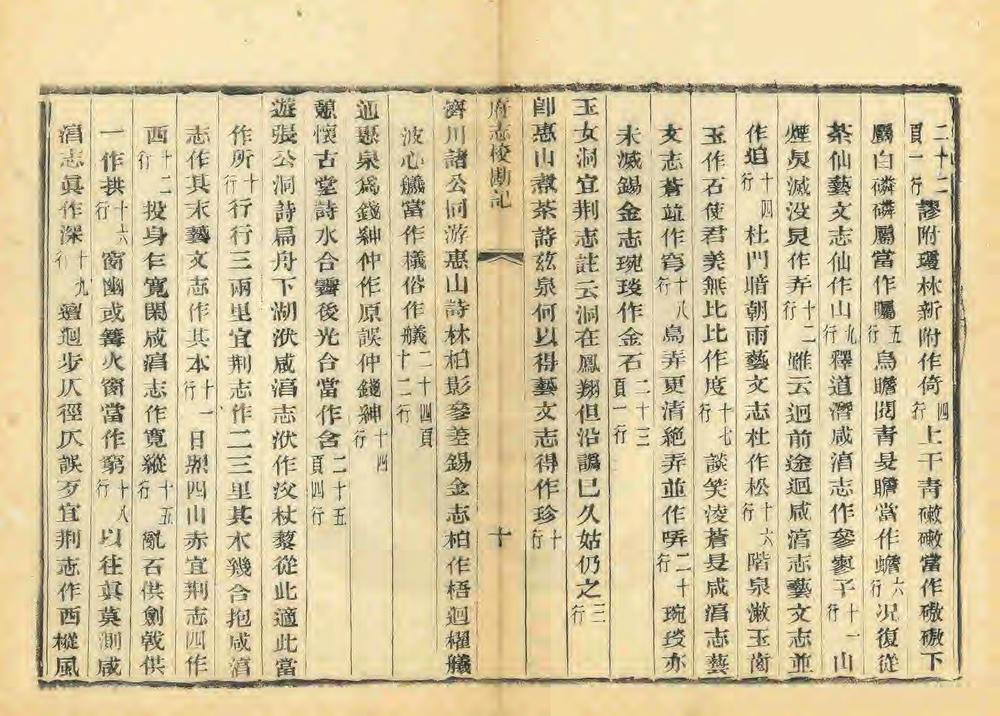 二十二頁一行謬附瓊林新附作倚四行上干青礉礉當作礉礉下
屬白磷磷屬當作矚五行烏瞻閱靑旻瞻當作蟾六行況復從
茶仙藝文志仙作山九行釋道潛咸淳志作參寥子十一行山
煙炅滅没炅作弄十二行雖云迴前途迴咸淳志藝文志並
作迫十四行杜門暗朝雨藝文志杜作松十六行階泉漱玉齒
玉作石使君美無比比作度十七行談笑凌蒼旻咸淳志藝
文志蒼竝作穹十八行鳥弄更清絶弄並作哢二十行琬琰亦
未滅錫金志琬琰作金石二十三頁一行
玉女洞宜荆志註云洞在鳳翔但沿譌巳久姑仍之三行
卽惠山煮茶詩茲泉何以得藝文志得作珍十行
府志校勘記 十
濟川諸公同游惠山詩林柏影參差錫金志柏作梧迴櫂艤
波心艤當作檥俗作艤二十四頁十二行
迺惠泉爲錢紳仲作原誤仲錢紳十四行
憩懷古堂詩水合霽後光台當作含二十五頁四行
遊張公洞詩扁舟下湖洑咸淳志洑作汊杖藜從此適此當
作所十行行行三兩里宜荆志作二三里其水幾合抱咸淳
志作其末藝文志作其本十一行日照四山赤宜荆志四作
西十二行投身乍寬閑咸淳志作寬縱十五行亂石供劍戟供
一作拱十六行窗幽或篝火窗當作窮十八行以往眞莫測咸
淳志眞作深十九行邅迴步仄徑仄誤歹宜荆志作西樅風